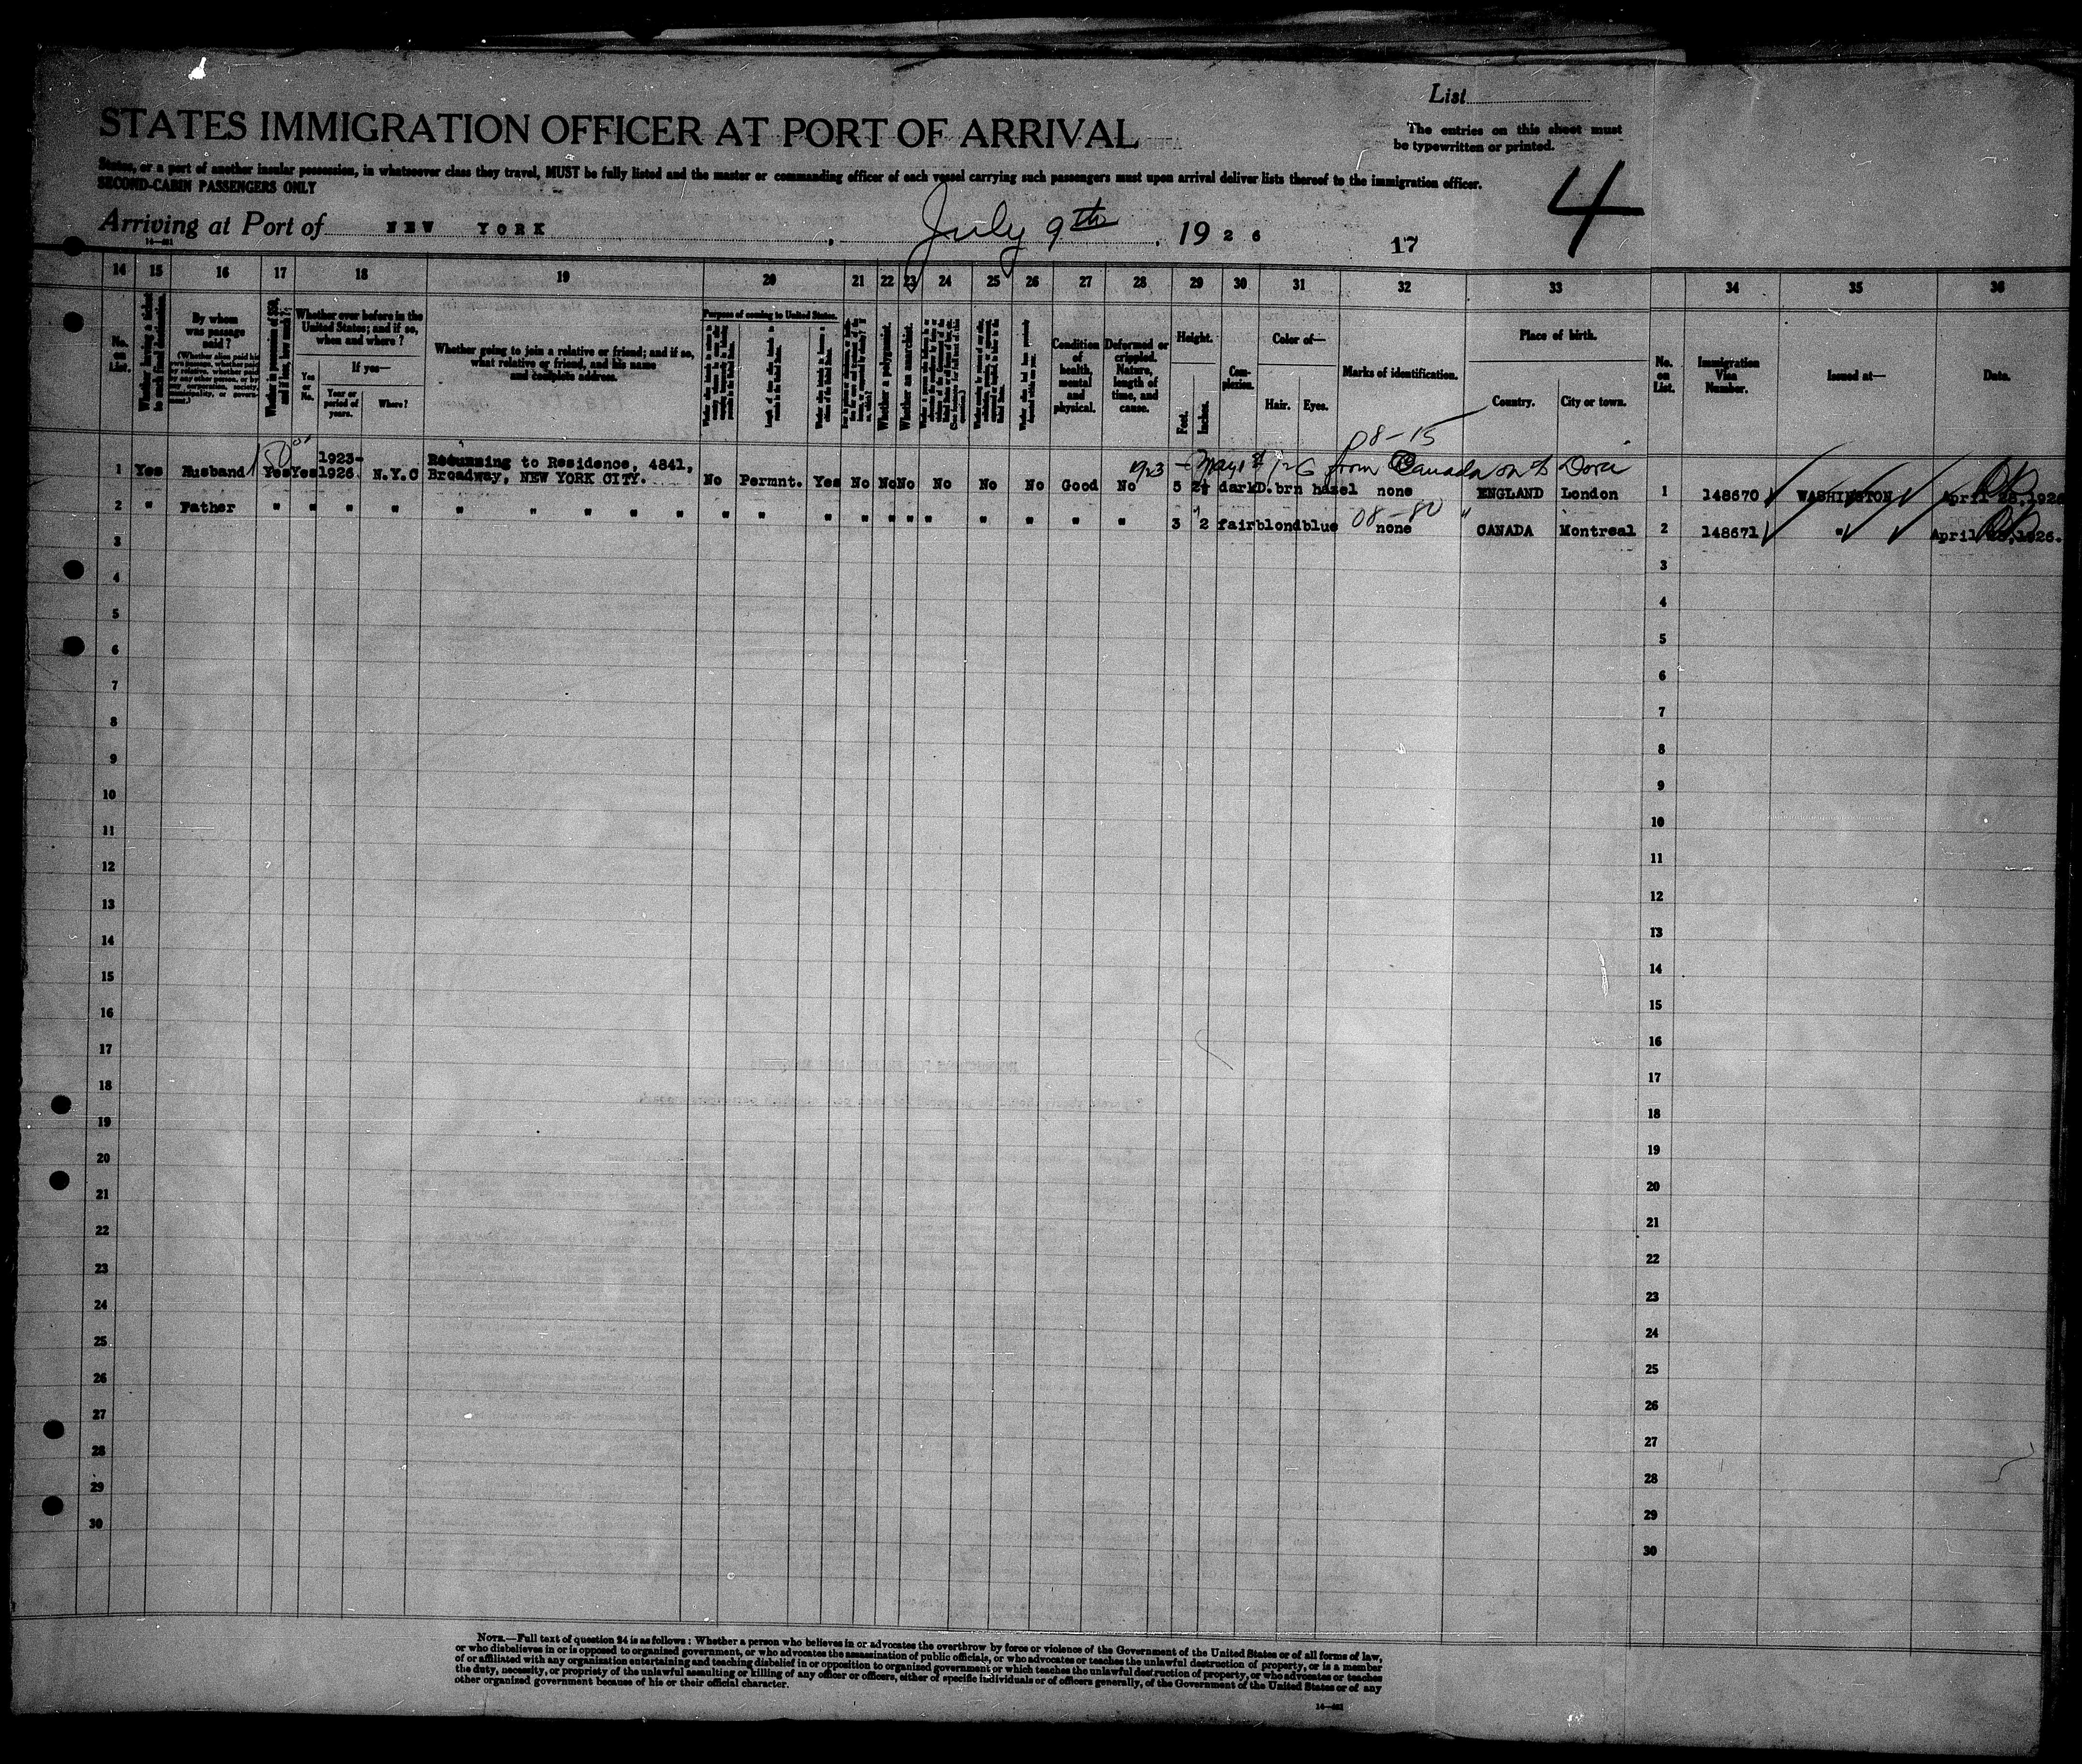 List
STATES IMMIGRATION OFFICER AT PORT OF ARRIVAL
The entries on this sheet must
be typewritten or printed.
States, or a part of another insular possession, in whatsoever class they travel, MUST be fully listed and the master or commanding officer of each vessel carrying such passengers must upon arrival deliver lists thereof to the immigration officer.
SECOND-CABIN PASSENGERS ONLY
4
Arriving at Port of NEW YORK, July 9th, 1926
17
14 15 16 17 18 19 20 21 22 23 24 25 26 27 28 29 30 31 32 33 34 35 36
No. on List.
Whether having a ticket to such final destination.
By whom was passage paid?
Whether in possession of $50, and if less, how much?
Whether ever before in the United States; and if so, when and where?
Yes or No.
If yes—
Year or period of years.
Where?
Whether going to join a relative or friend; and if so, what relative or friend, and his name and complete address.
Purpose of coming to United States.
Whether a polygamist.
Whether an anarchist.
Condition of health, mental and physical.
Deformed or crippled. Nature, length of time, and cause.
Height.
Feet.
Inches.
Complexion.
Color of—
Hair.
Eyes.
Marks of identification.
Place of birth.
Country.
City or town.
No. on List.
Immigration Visa Number.
Issued at—
Date.
08-15
1923 - May 1st /26 from Canada on
1 Yes Husband Yes Yes 1923-1926 N.Y.C Returning to Residence, 4841, Broadway, NEW YORK CITY. No Permnt. Yes No No No No No No Good No 5 2½ dark D.brn hazel none ENGLAND London 1 148670 WASHINGTON April 28,1926
08-80
2 " Father " " " " " " " " " " " " " " " " " " " " " " 3 2 fair blond blue none CANADA Montreal 2 148671 " April 28,1926.
3 3
4 4
5 5
6 6
7 7
8 8
9 9
10 10
11 11
12 12
13 13
14 14
15 15
16 16
17 17
18 18
19 19
20 20
21 21
22 22
23 23
24 24
25 25
26 26
27 27
28 28
29 29
30 30
NOTE.—Full text of question 24 is as follows: Whether a person who believes in or advocates the overthrow by force or violence of the Government of the United States or of all forms of law,
or who disbelieves in or is opposed to organized government, or who advocates the assassination of public officials, or who advocates or teaches the unlawful destruction of property, or is a member
of or affiliated with any organization entertaining and teaching disbelief in or opposition to organized government or which teaches the unlawful destruction of property, or who advocates or teaches
the duty, necessity, or propriety of the unlawful assaulting or killing of any officer or officers, either of specific individuals or of officers generally, of the Government of the United States or of any
other organized government because of his or their official character.